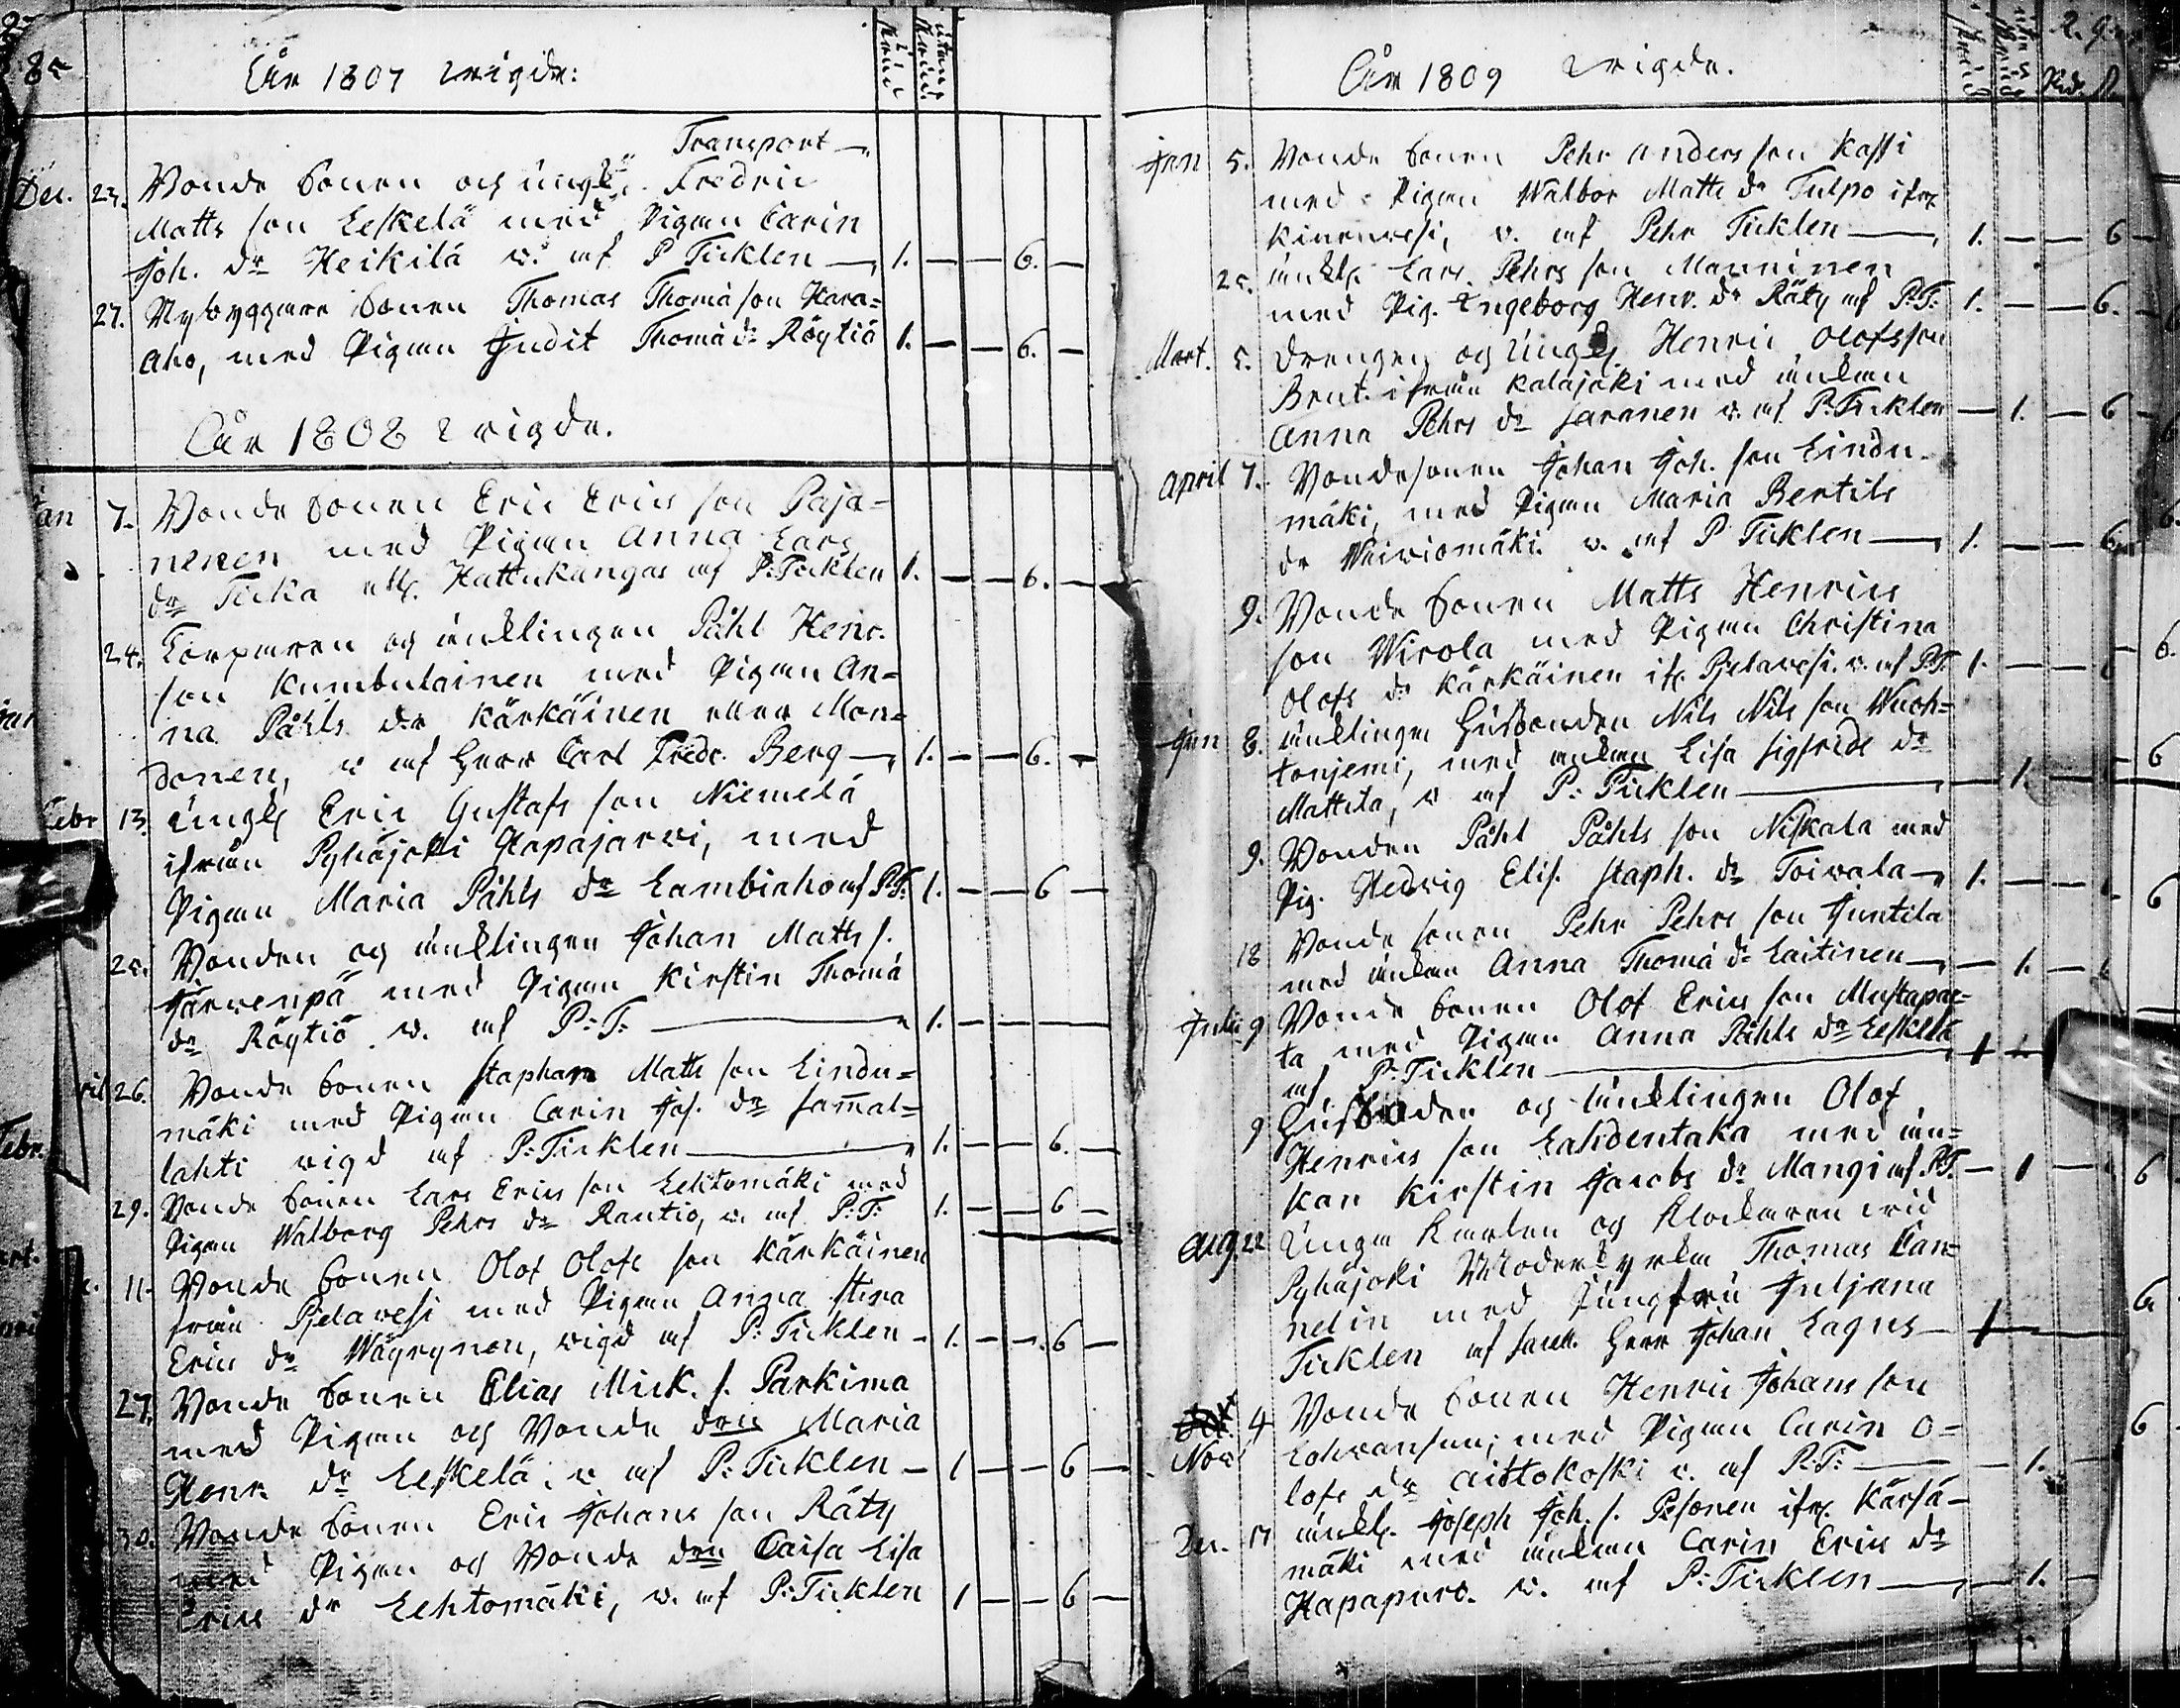 År 1807 wigde:
i krona
utan krona
Transport —
Dec. 23. Bonde Sonen och ungk. Fredric
Matts son Leskelä med Pigan Carin
Joh. dr Heikilä v. af P Ticklen — 1. — — 6. —
27. Nybyggare Sonen Thomas Thomä son Kara=
aho, med Pigan Judit Thomä dr Röytiä 1. — — 6. —
År 1808 wigde.
Jan 7. Bonde Sonen Eric Erics son Paja=
nenen med Pigan Anna Lars
dr Ticka ell. Kattukangas af P: Ticklen 1. — — 6. —
24. Torparen och änklingen Påhl Henr.
son Kumbulainen med Pigan An=
na Påhls dr Kärkäinen eller Mon=
donen, v af Herr Carl Fredr. Berg — 1. — — 6. —
Febr 13. Ungk Eric Gustafs son Niemelä
ifrån Pyhäjocki Hapajärvi, med
Pigan Maria Påhls dr Lambinho af P:T: 1. — — 6 —
25. Bonden och änklingen Johan Matts s.
Järvenpä med Pigan Kirstin Thomä
dr Röytiö v. af P: T: — 1. — — —
ril 26. Bonde Sonen Staphan Matts son Lindu=
mäki med Pigan Carin Jos. dr Sammal=
lahti vigd af P: Ticklen — 1. — — 6. —
29. Bonde Sonen Lars Erics son Lehtomäki med
Pigan Walborg Pehrs dr Rautio, v. af P: T: 1. — — 6 —
11. Bonde Sonen Olof Olofs son Kärkäinen
från Pjelavesi med Pigan Anna Stina
Erics dr Wäyrynen, vigd af P: Ticklen — 1. — — 6 —
27. Bonde Sonen Elias Mick. s. Parkima
med Pigan och Bonde dren Maria
Henr. dr Leskelä, v af P: Ticklen — 1 — — 6 —
30. Bonde Sonen Eric Johans son Räty
med Pigan och Bonde dren Caisa Lisa
Erics dr Lehtomäki, v. af P: Ticklen 1 — — 6 —
År 1809 wigde.
Jan 5. Bonde Sonen Pehr Anders son Kassi
med Pigan Walbor Matts dr Tulpo ifr.
Kinenvesi, v. af Pehr Ticklen — 1. — — 6 —
25. änkl. Lars Pehrs son Manninen
med Pig. Engeborg Henr. dr Räty af P:T: 1. — — 6. —
Mart. 5. Drengen och Ungk. Henric Olofsson
Brut. ifrån Kalajoki med änkan
Anna Pehrs dr Saranen v. af P: Ticklen — 1. — 6 —
April 7. Bondesonen Johan Joh. son Lindu-
mäki, med Pigan Maria Bertils
dr Weiviomäki v. af P Ticklen — 1. — — 6
9. Bonde Sonen Matts Henrics
son Wirola med Pigan Christina
Olofs dr Kärkäinen ifr Pjelavesi. v. af P:T. 1. — — 6.
Jun 8. änklingen Husbonden Nils Nils son Wuoh=
tonjemi, med änkan Lisa Sigfrids dr
Mattila, v af P: Ticklen — 1. — 6
9. Bonden Påhl Påhls son Niskala med
Pig. Hedvig Elis. Staph. dr Toivala — 1. — — 6
18 Bonde Sonen Pehr Pehrs son Juntila
med änkan Anna Thomä dr Laitinen — 1. —
Julii 9 Bonde Sonen Olof Erics son Mustapar=
ta med Pigan Anna Påhls dr Leskelä
af P: Ticklen — 1
9 Husbonden och änklingen Olof
Henrics son Lahdentaka med än=
kan Kirstin Jacobs dr Mangi af P:T. — 1 — 6
Aug. 22 Unga Karlen och Klockaren vid
Pyhäjoki Moderkyrka Thomas Can=
nelin med Jungfru Juljana
Ticklen af Herr Johan Lagus — 1 — 6
Nov 4 Bonde Sonen Henric Johans son
Lohvansuu; med Pigan Carin O=
lofs dr Aittokoski v. af P: T: — 1. — 6
Dec. 17 änkl. Joseph Joh. s. Pesonen ifr. Kärsä-
mäki med änkan Carin Erics dr
Hapapuro. v. af P: Ticklen — 1.